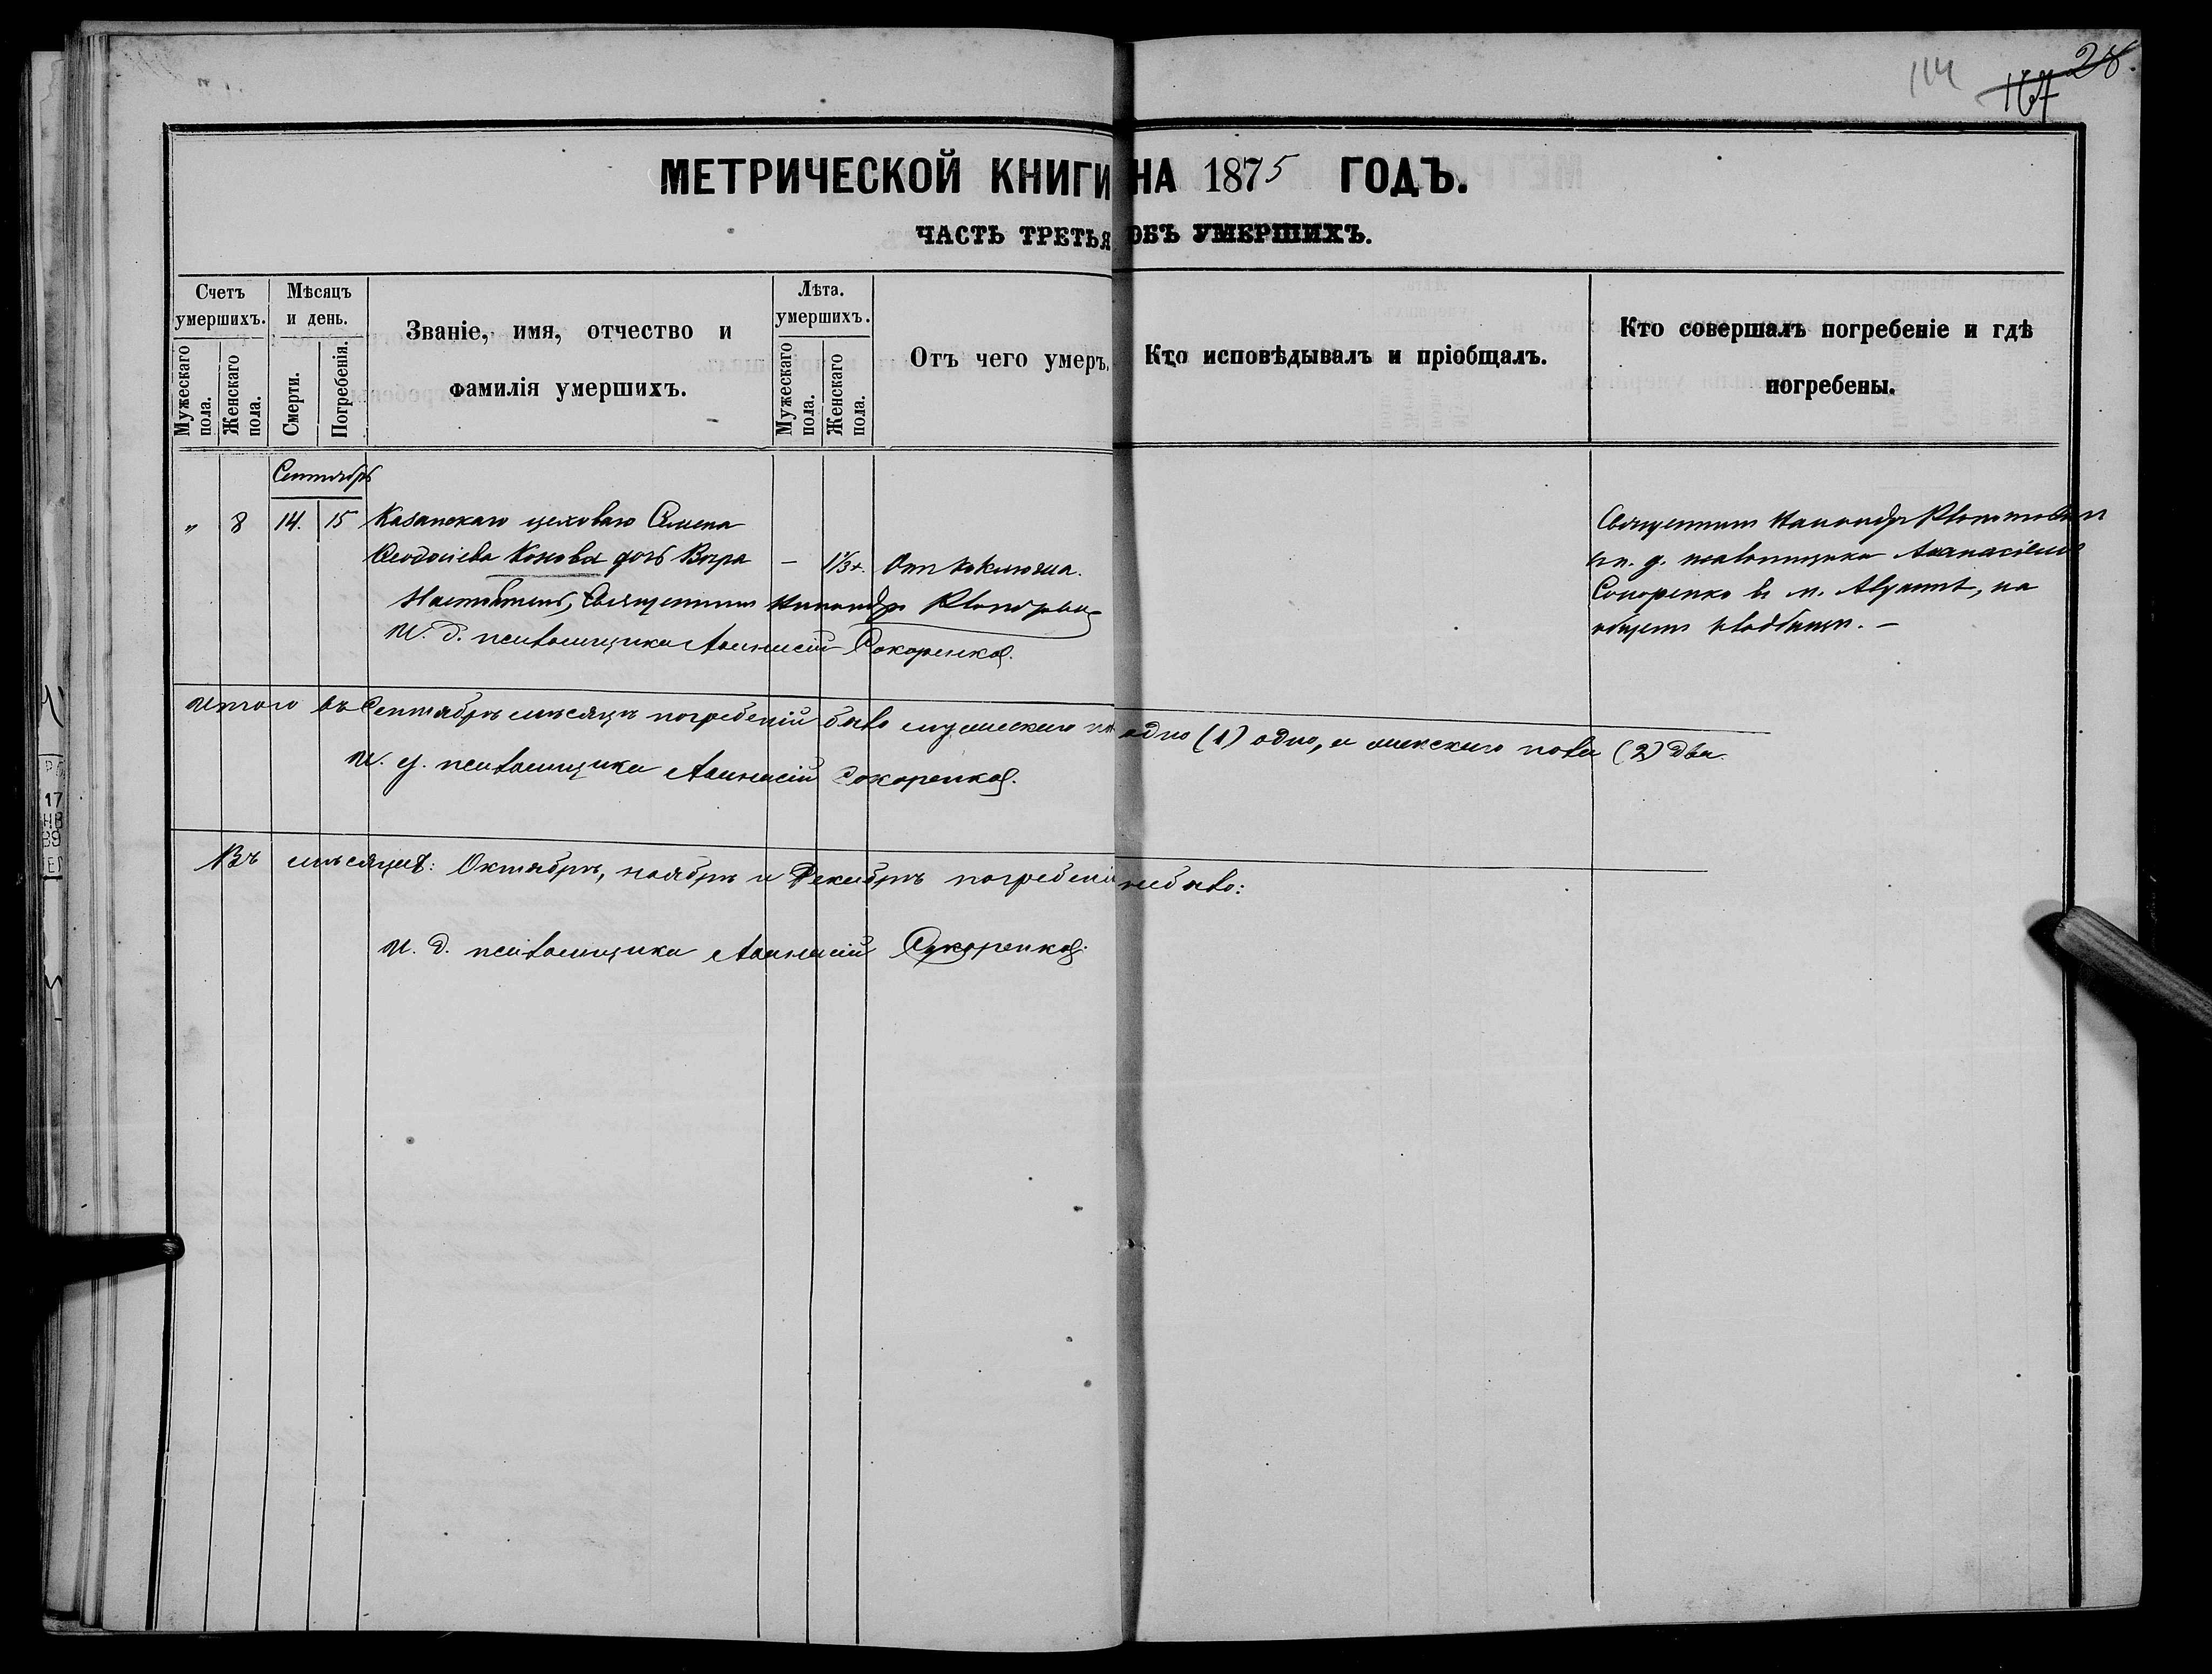 114 167 28.
МЕТРИЧЕСКОЙ КНИГИ НА 1875 ГОДЪ.
ЧАСТЬ ТРЕТЬЯ ОБЪ УМЕРШИХЪ.
Счетъ умершихъ.
Мужескаго пола.
Женскаго пола.
Мѣсяцъ и день.
Смерти.
Погребенія.
Званіе, имя, отчество и
фамилія умершихъ.
Лѣта. умершихъ.
Мужескаго пола.
Женскаго пола.
Отъ чего умеръ.
Кто исповѣдывалъ и пріобщалъ.
Кто совершалъ погребеніе и гдѣ
погребены.
Сентябрь
„ 8 14. 15 Казанскаго цеховаго Семена
Ѳеодосіева дочь Вѣра — 1⅓ Отъ коклюша.
Настоятель, Священникъ Никандръ
И. д. псаломщика Аѳанасій Сокоренко.
Священникъ Никандръ
и. д. псаломщика Аѳанасіемъ
Сокоренко въ на
общемъ кладбищѣ. —
Итого въ Сентябрѣ мѣсяцѣ погребеній было мужескаго одно (1) одно, и женскаго пола (2) два.
И. д. псаломщика Аѳанасій Сокоренко.
Въ мѣсяцѣ: Октябрѣ, ноябрѣ и Декабрѣ погребеній небыло:
И. д. псаломщика Аѳанасій Сокоренко.